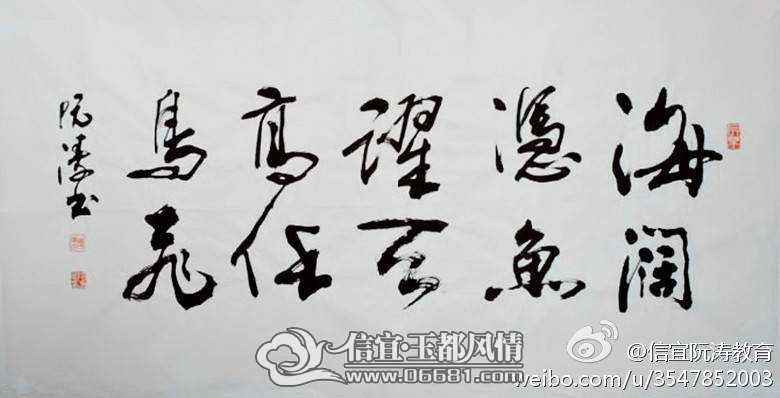 海闊
憑魚
躍天
高任
鳥飛
阮濤书
信宜·玉都风情
www.06681.com
@信宜阮涛教育
weibo.com/u/3547852003